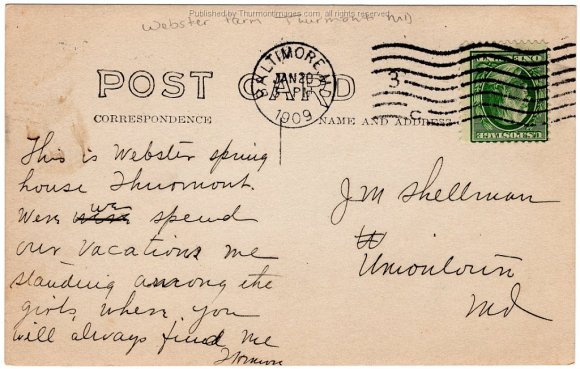 Published by Thurmontimages.com, all rights reserved
Webster Farm Thurmont MD
POST CARD
BALTIMORE, MD.
JAN 20
PM
1909
3
CORRESPONDENCE
NAME AND ADDRESS
This is Webster spring
house Thurmont.
Were we spend
our vacations me
standing among the
girls, where you
will always find me
J M Shellman
Uniontown
Md